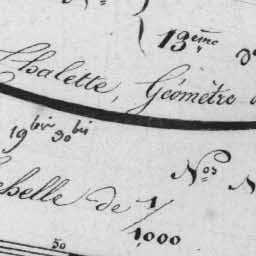 13ème
Chalette, Géomètre
19bis 30bis
Nos
chelle de 1/1000
50